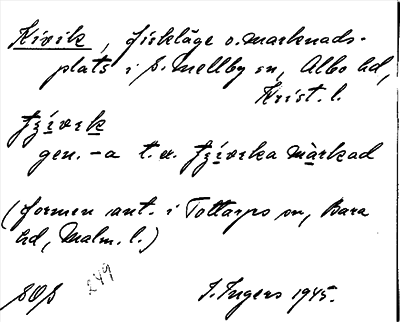 Kivik, fiskläge o. marknads-
plats i S. Mellby sn, Albo hd,
Krist. l.
tʃívɪk
gen. -a t. ex. tʃívɪka màrkad
(formen ant. i Tottarps sn, Bara
hd, Malm. l.)
SOS 249 I. Ingers 1945.